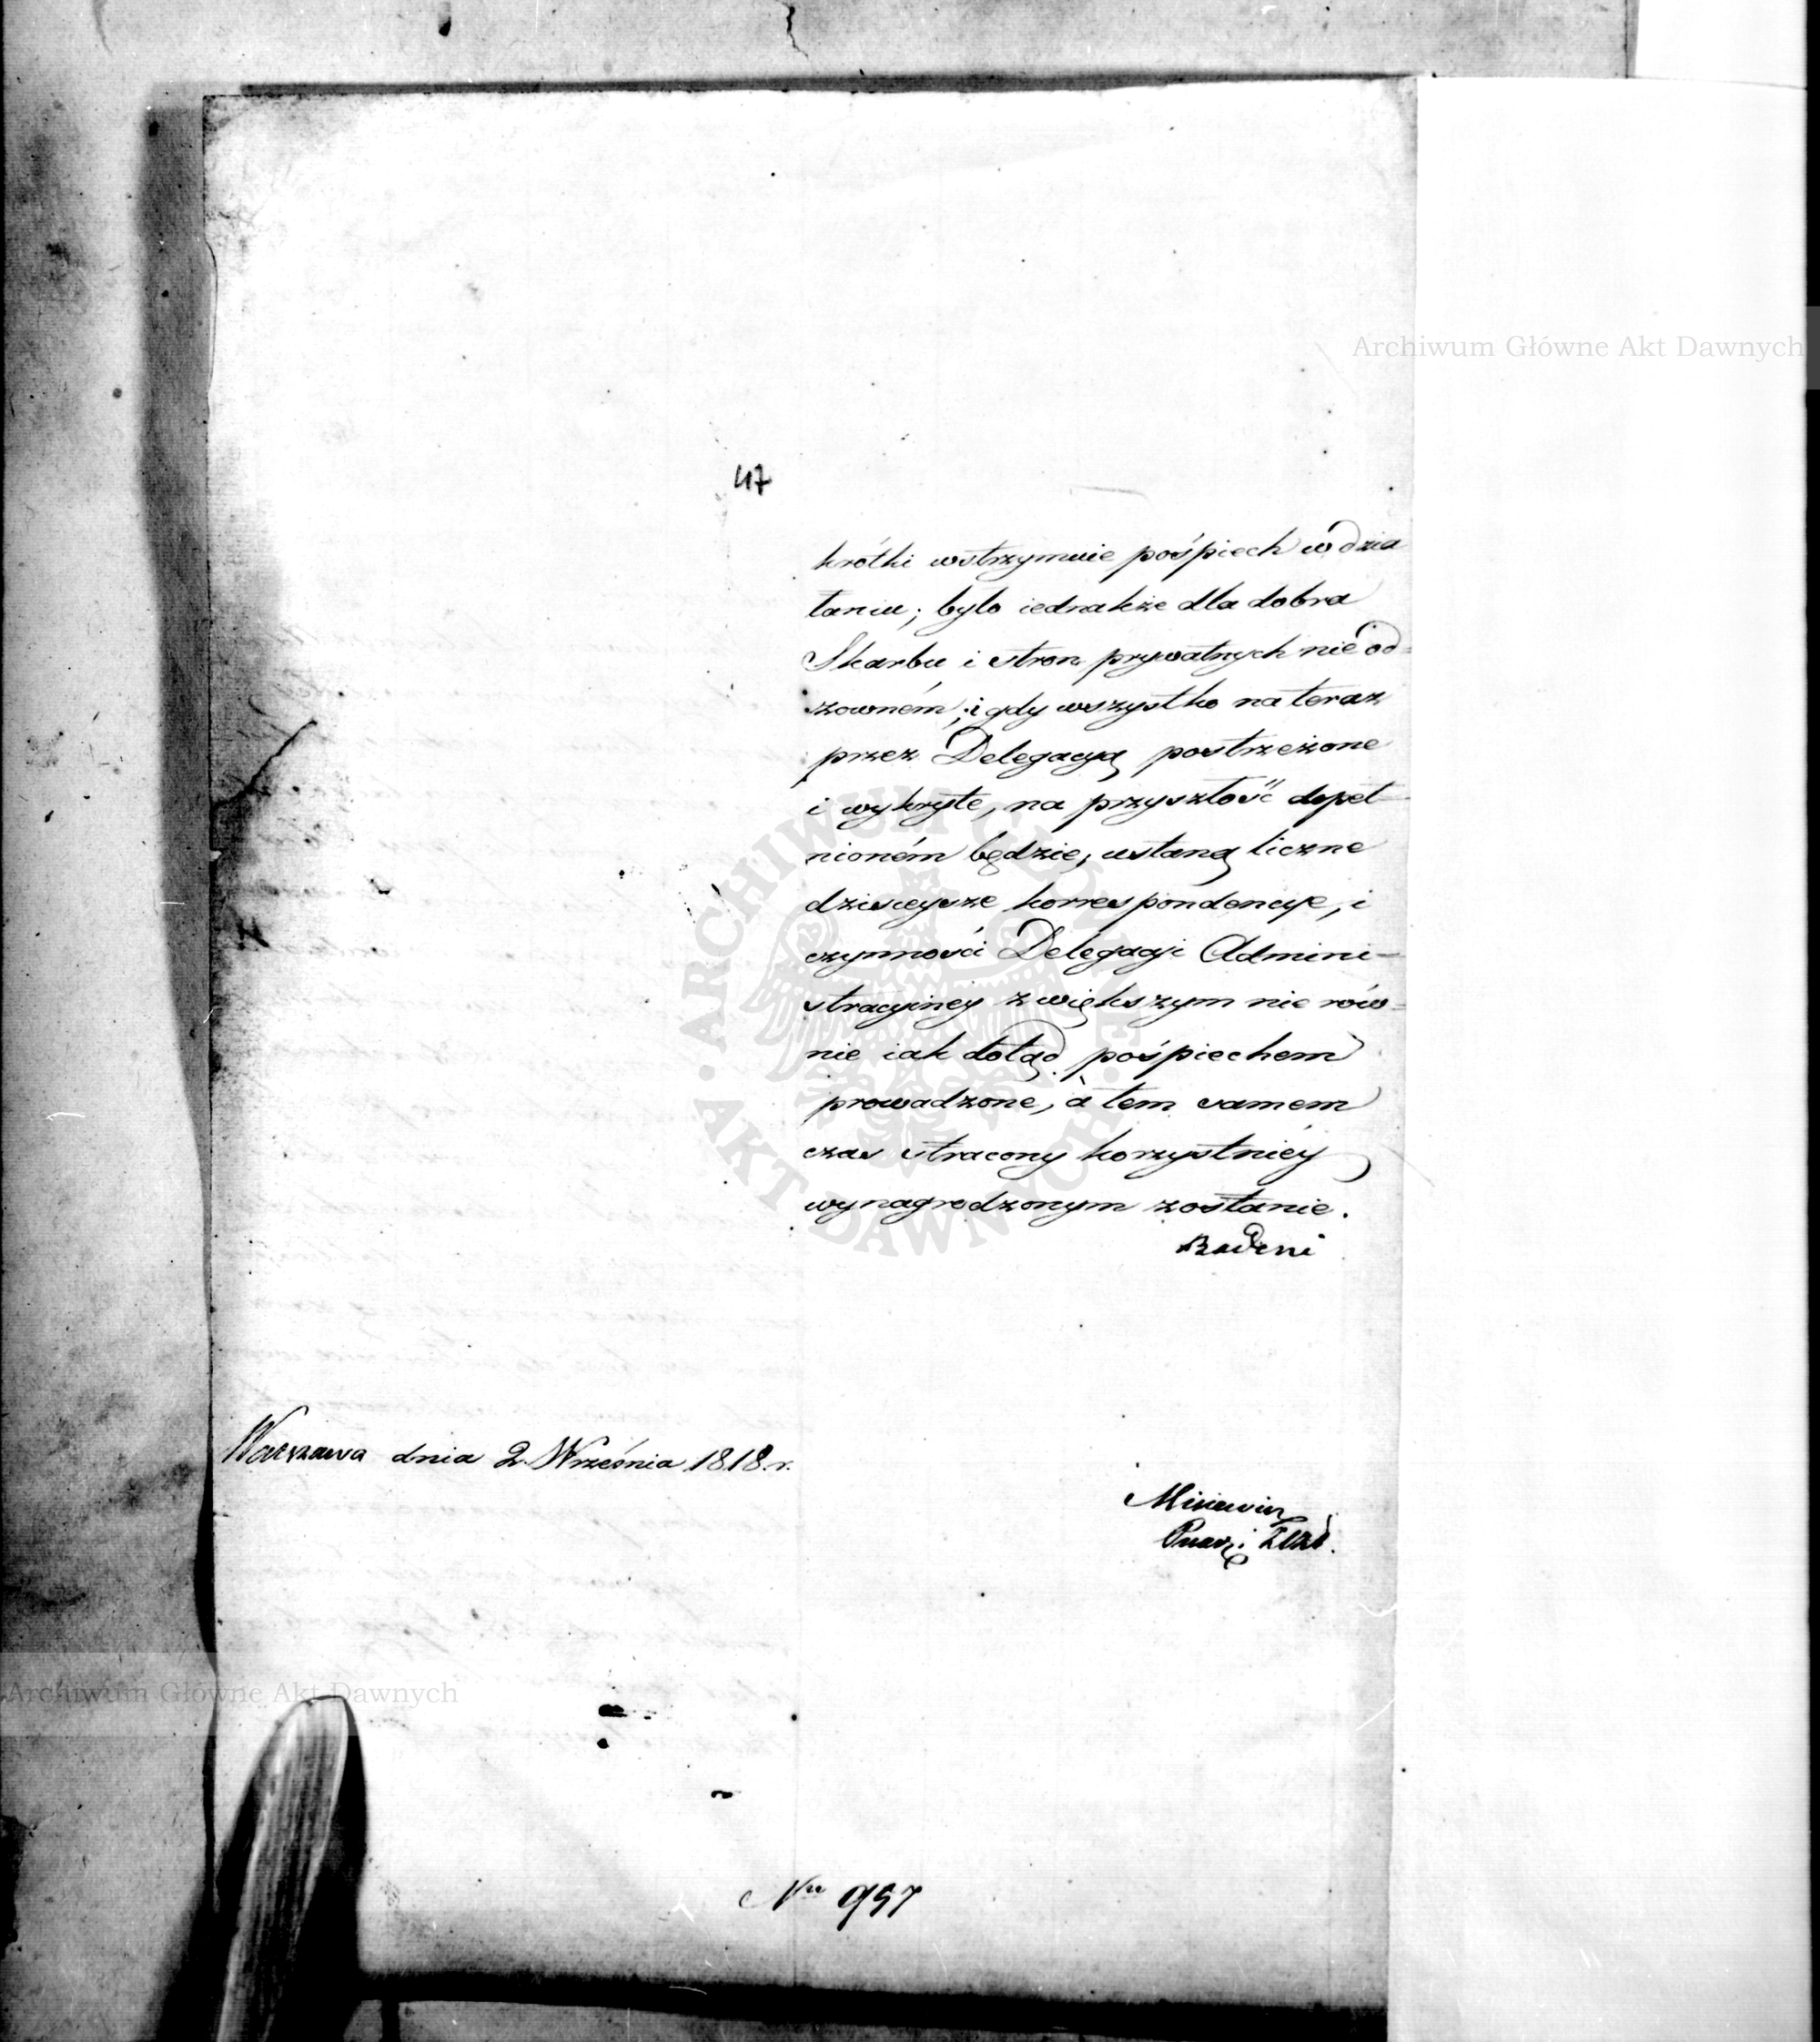 Archiwum Główne Akt Dawnych
47
krótki wstrzymuie pośpiech w dzia
łaniu; było iednakże dla dobra
Skarbu i stron prywatnych nie od=
zowném; i gdy wszystko na teraz
przez Delegacyą postrzeżone
i wykryte, na przyszłość dopeł-
nioném będzie, ustaną liczne
dzisieysze korrespondencye, i
czynności Delegacyi Admini-
stracyiney z większym nie rów=
nie iak dotąd pośpiechem
prowadzone, à tem samem
czas stracony korzystniéy
wynagrodzonym zostanie.
Badeni
Warszawa dnia 2. Września 1818. r.
Archiwum Główne Akt Dawnych
Nro 957
ARCHIWUM GŁÓWNE
AKT DAWNYCH